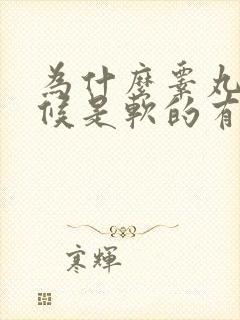 为什麼睾丸
候是軟的有
寒輝